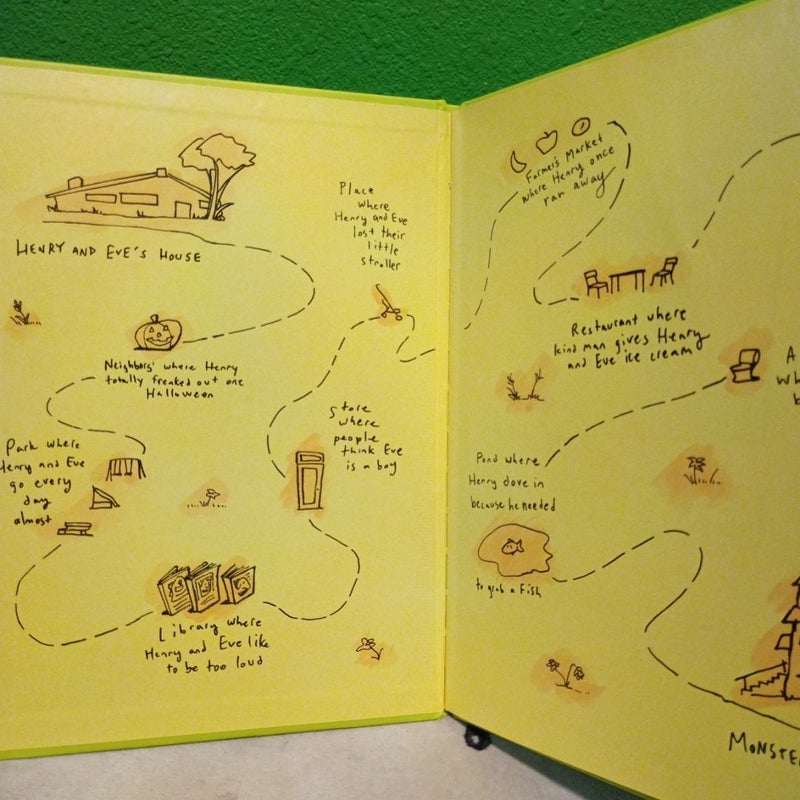 HENRY AND EVE'S HOUSE
Place
where
Henry and Eve
lost their
little
stroller
Neighbors' where Henry
totally freaked out one
Halloween
Park where
Henry and Eve
go every
day
almost
Store
where
people
think Eve
is a boy
Library where
Henry and Eve like
to be too loud
Farmer's Market
where Henry once
ran away
Restaurant where
kind man gives Henry
and Eve ice cream
A
Wh
b
Pond where
Henry dove in
because he needed
to grab a fish
MONSTE